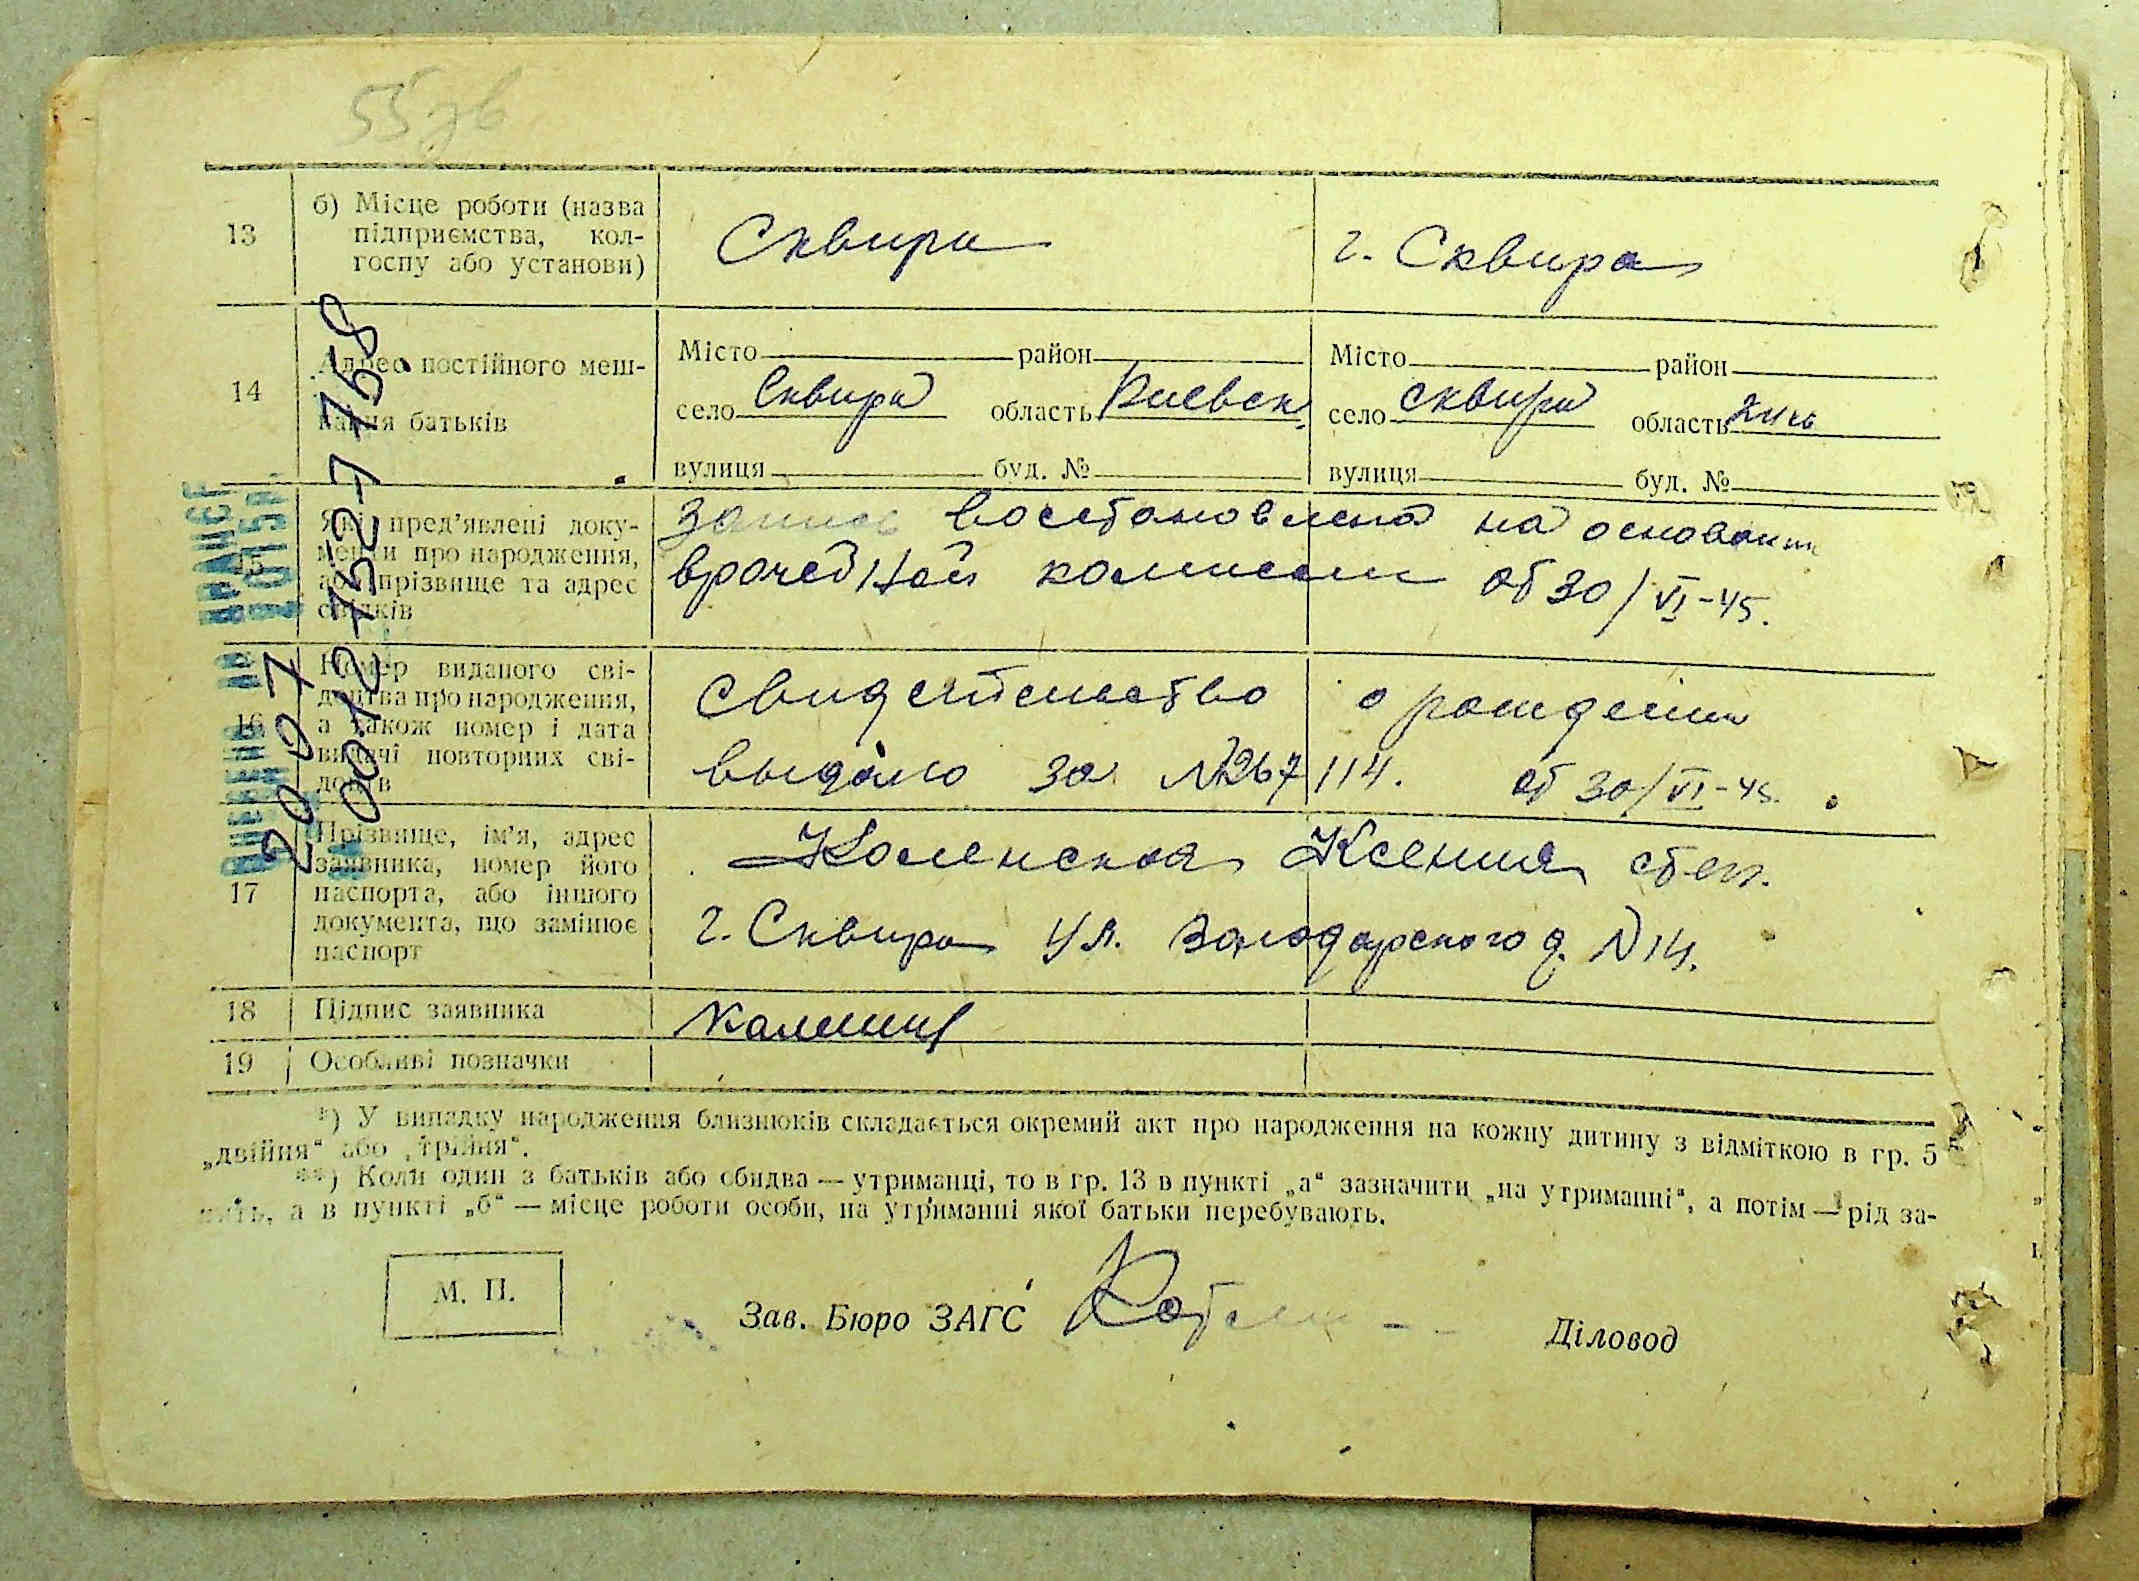 55 зв
13
б) Місце роботи (назва
підприємства, кол-
госпу або установи)
Сквира
г. Сквира
14
Адрес постійного меш-
кання батьків
Місто район
село Сквира область Киевск
вулиця буд. №
Місто район
село Сквира область
вулиця буд. №
15
Які пред'явлені доку-
менти про народження,
або прізвище та адрес
свідків
Запись восстановлена на основании
врачебной комиссии от 30/VI-45.
16
Номер виданого сві-
доцтва про народження,
а також номер і дата
видачі повторних сві-
доцтв
свидетельство о рождении
выдано за №267114. от 30/VI-45.
17
Прізвище, ім'я, адрес
заявника, номер його
паспорта, або іншого
документа, що замінює
паспорт
Коленская Ксения степ.
г. Сквира ул. Володарского д. N14.
18
Підпис заявника
19
Особливі позначки
ВНЕСЕНО ДО ДРАЦСГ
20 07 2015р.
№ 00127327758
*) У випадку народження близнюків складається окремий акт про народження на кожну дитину з відміткою в гр. 5
„двійня“ або „трійня“.
**) Коли один з батьків або обидва — утриманці, то в гр. 13 в пункті „а“ зазначити „на утриманні“, а потім — рід за-
нять, а в пункті „б“ — місце роботи особи, на утриманні якої батьки перебувають.
М. П.
Зав. Бюро ЗАГС
Діловод